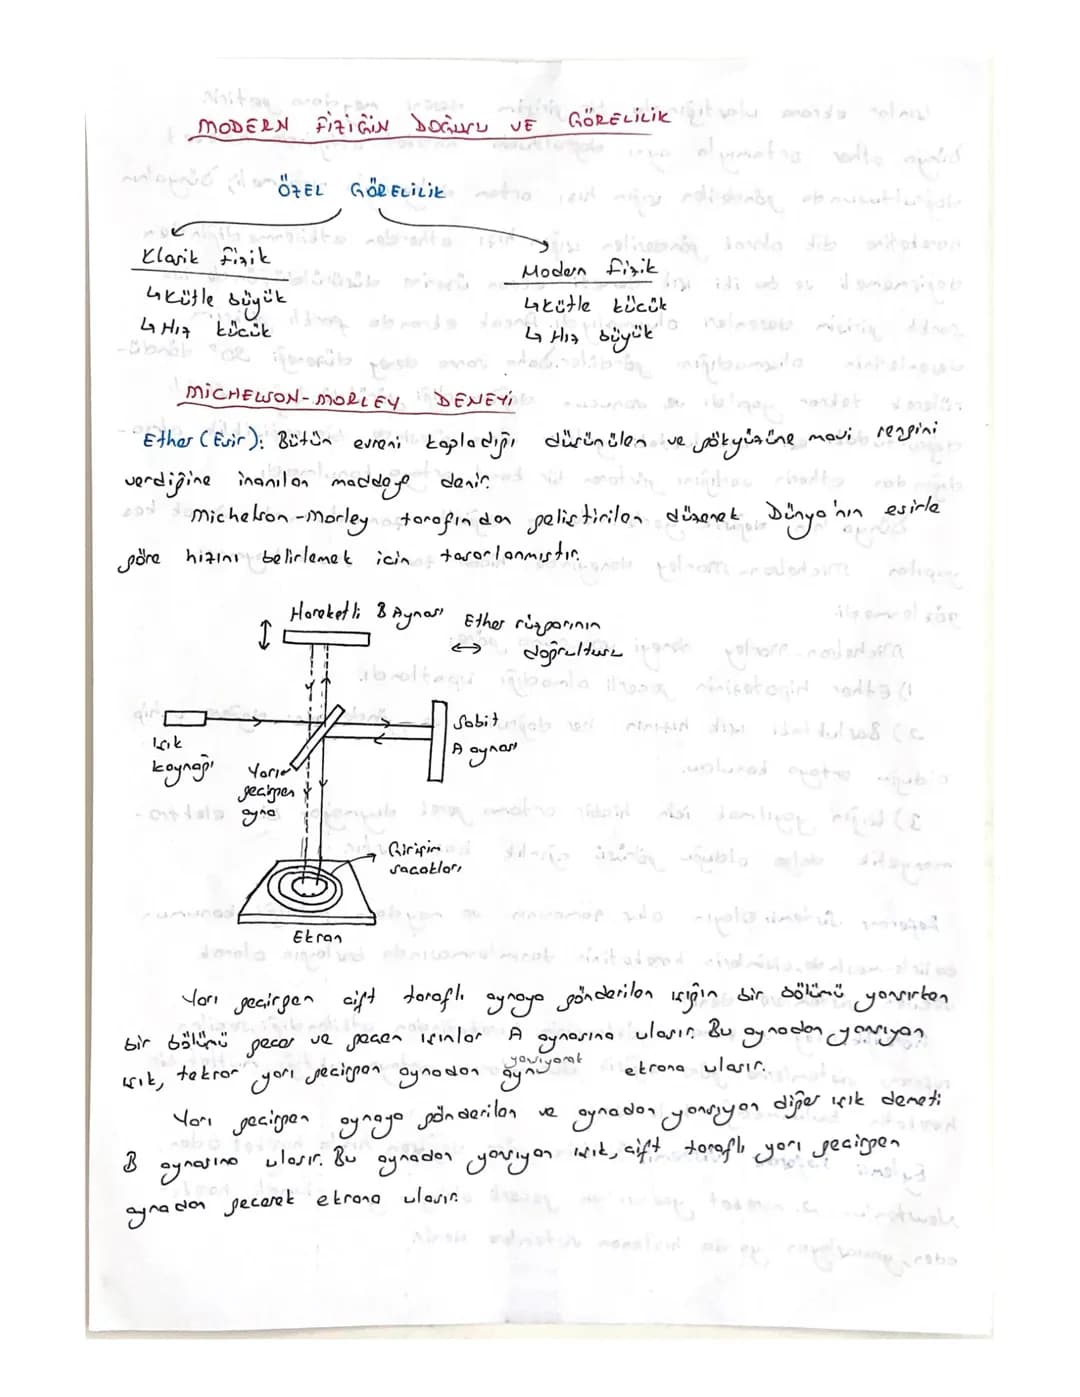 MODERN FİZİĞİN DOĞUŞU VE GÖRELİLİK
ÖZEL GÖRELİLİK
Klasik Fizik
↳ Kütle büyük
↳ Hız küçük
Modern Fizik
↳ Kütle küçük
↳ Hız büyük
MİCHELSON-MORLEY DENEYİ
Ether (Esir): Bütün evreni kapladığı düşünülen ve gökyüzüne mavi rengini
verdiğine inanılan maddeye denir.
Michelson-Morley tarafından geliştirilen düzenek Dünya'nın esirle
göre hızını belirlemek için tasarlanmıştır.
Hareketli B Aynası
Ether rüzgarının
doğrultusu
Işık
kaynağı
Yarı
geçirgen
ayna
Sabit
A aynası
Girişim
saçakları
Ekran
Yarı geçirgen çift taraflı aynaya gönderilen ışığın bir bölümü yansırken
bir bölümü geçer ve geçen ışınlar A aynasına ulaşır. Bu aynadan yansıyan
ışık, tekrar yarı geçirgen aynadan yansıyarak ekrana ulaşır.
Yarı geçirgen aynaya gönderilen ve aynadan yansıyan diğer ışık demeti
B aynasına ulaşır. Bu aynadan yansıyan ışık, çift taraflı yarı geçirgen
aynadan geçerek ekrana ulaşır.